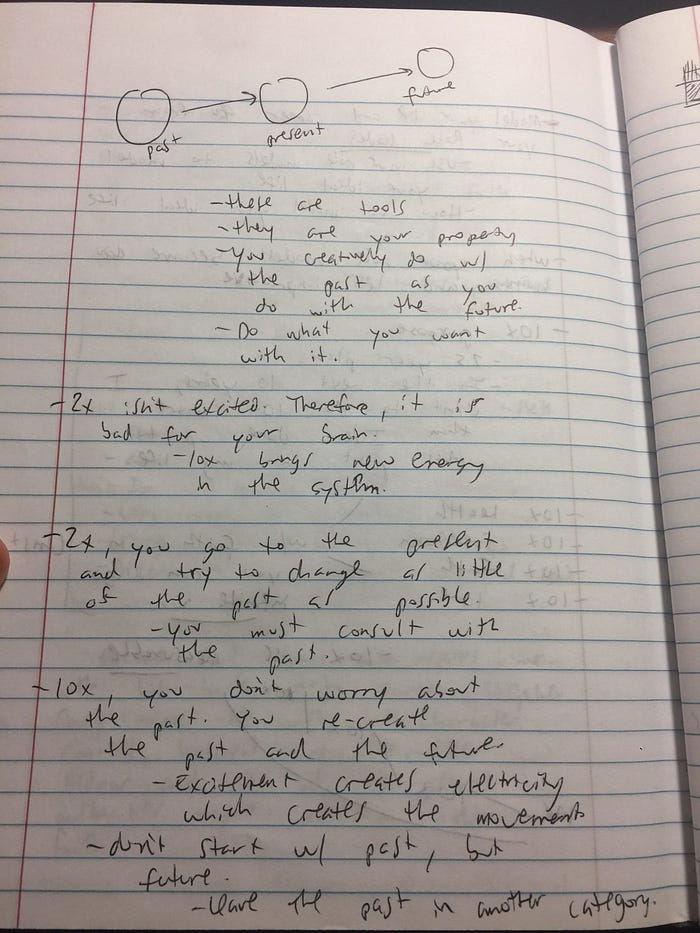 past
present
future
- these are tools
- they are your property
- You creatively do w/
the past as you
do with the future.
- Do what you want
with it.
- 2x isn't excited. Therefore, it is
bad for your brain.
- 10x brings new energy
in the system.
- 2x, you go to the present
and try to change as little
of the past as possible.
- you must consult with
the past.
- 10x, you don't worry about
the past. You re-create
the past and the future.
- Excitement creates electricity
which creates the movement
- don't start w/ past, but
future.
- leave the past in another category.